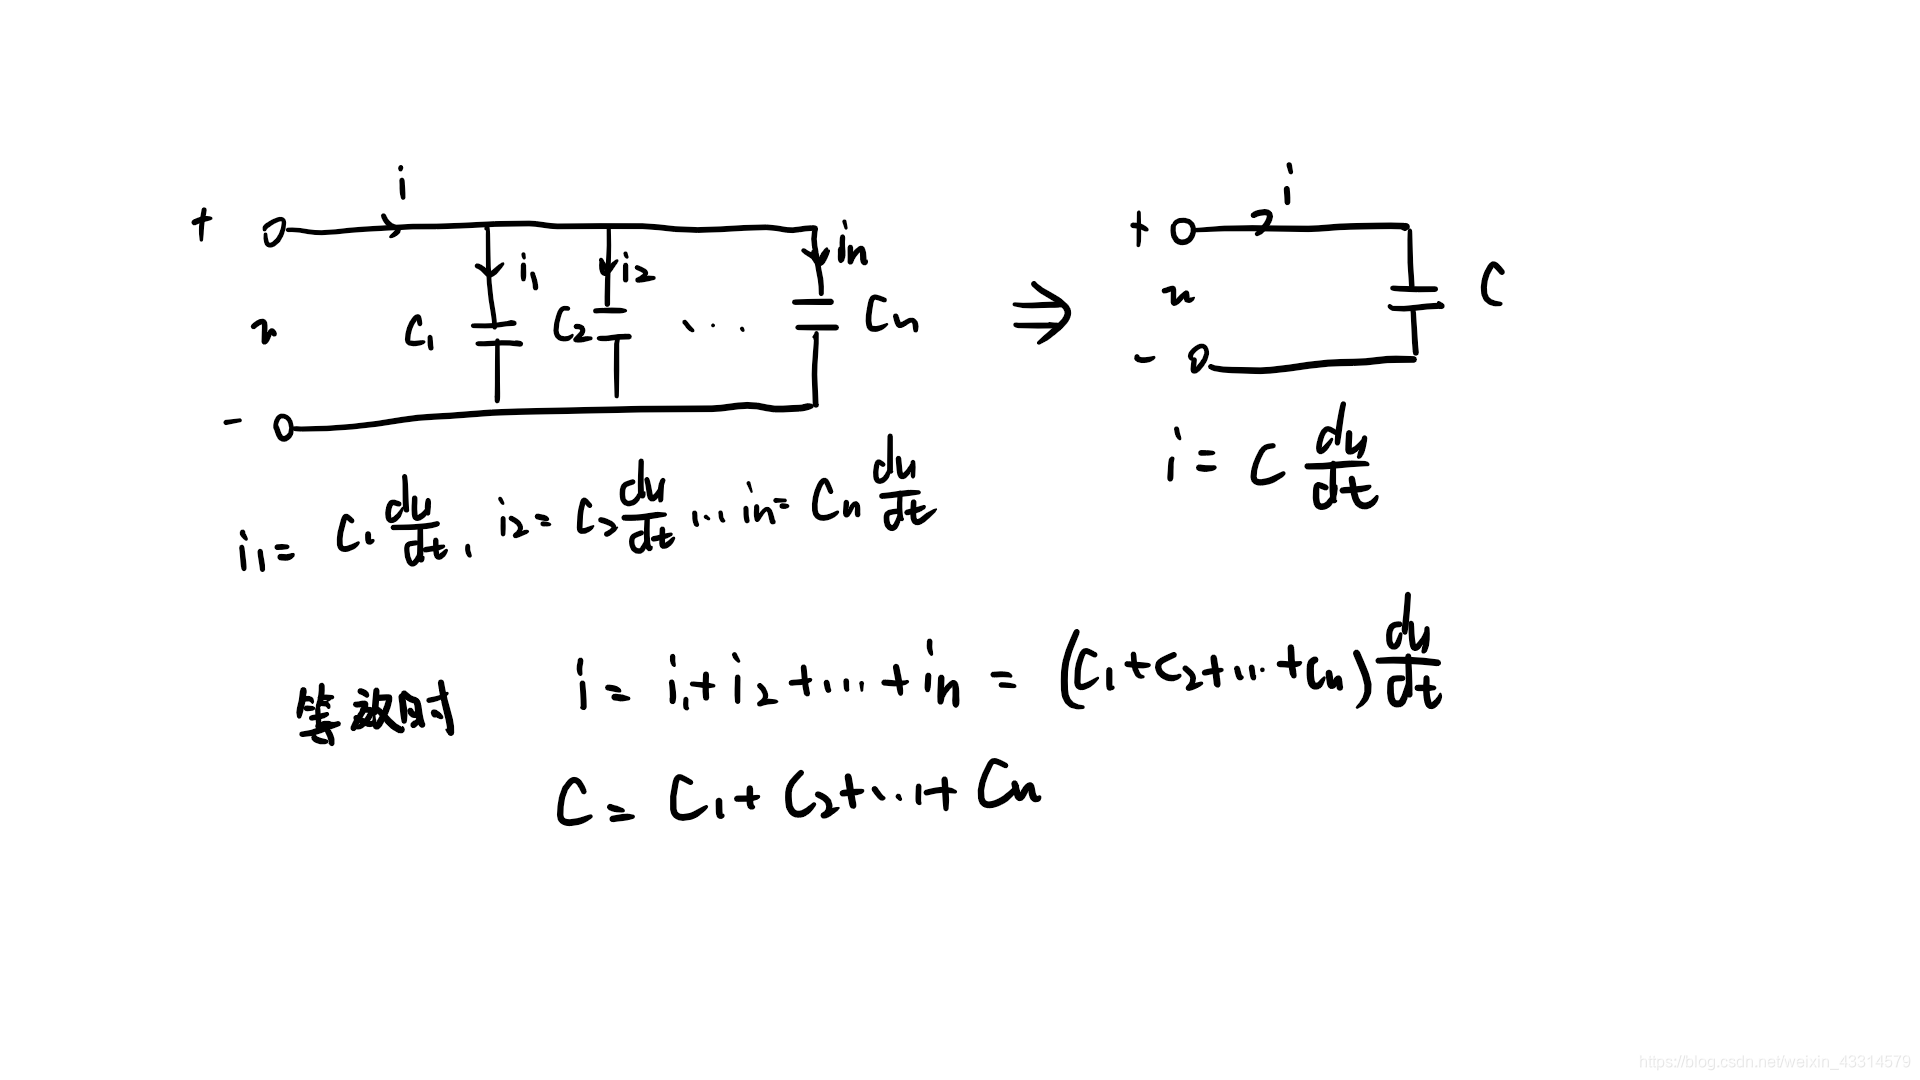 i i
+ i₁ i₂ iₙ +
u C₁ C₂ ... Cₙ ⇒ u C
- -
i = C du/dt
i₁ = C₁ du/dt, i₂ = C₂ du/dt ... iₙ = Cₙ du/dt
等效时 i = i₁ + i₂ + ... + iₙ = (C₁ + C₂ + ... + Cₙ) du/dt
C = C₁ + C₂ + ... + Cₙ
https://blog.csdn.net/weixin_43314579